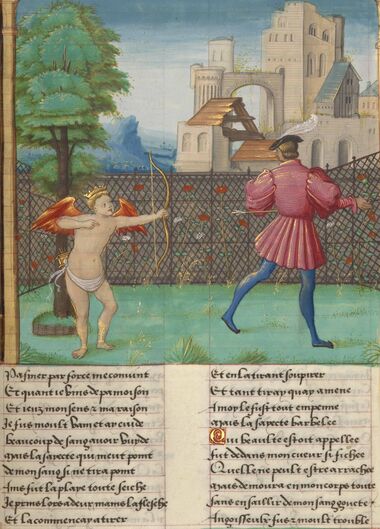 Pasmer par force me conuint
Et quant ie vins de pamoison
Et ieuz mon sens & ma raison
Je fus moult vain et ay cuide
Beaucoup de sang auoir vuyde
Mais la sayecte qui me point
De mon sang si ne tira point
Ains fut la playe toute seiche
Je prins lors a deux mains la flesche
Et la commencay a tirer
Et en la tirant soupirer
Et tant tiray que iamene
A moy le fust tout empenne
Mais la sayecte barbelee
Qui beaulte estoit appellee
Fut dedans mon cueur si fichee
Quelle ne peult estre arrachee
Mais demoura en mon corps toute
Sans en saillir de mon sang goucte
Angoisseux fuz moult & trouble